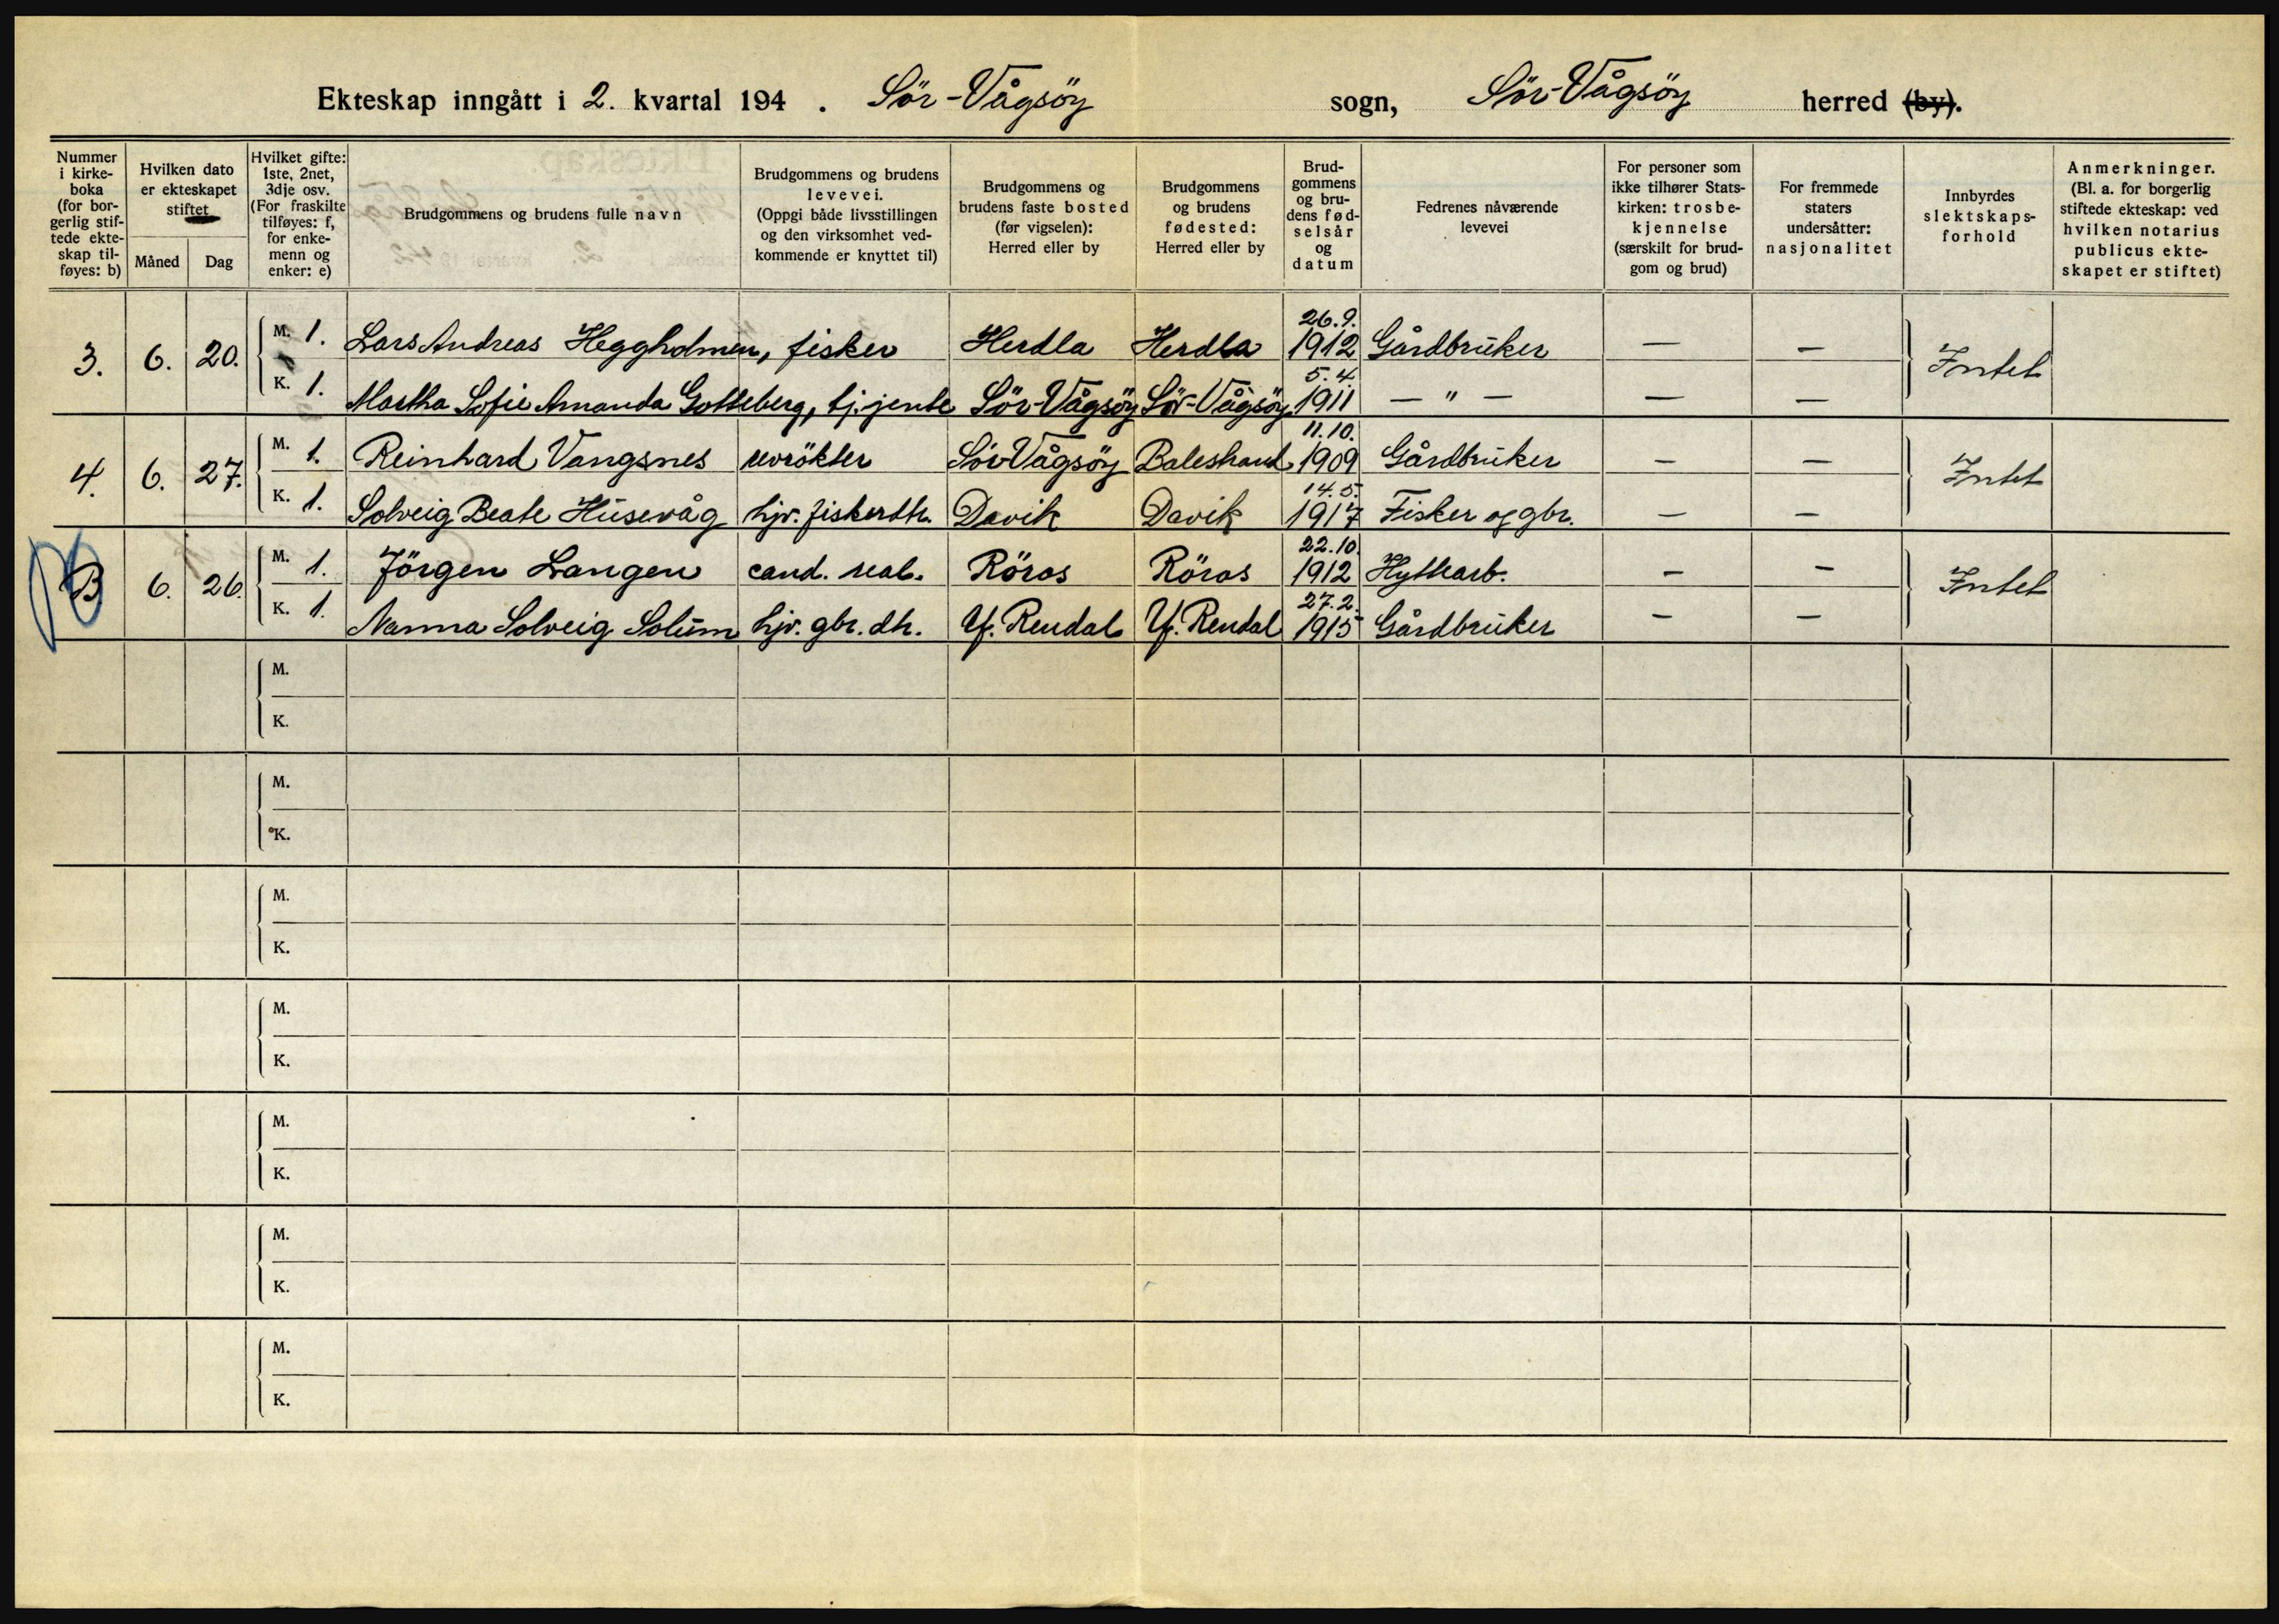 Ekteskap inngått i 2. kvartal 194 . Sör-Vågsöy sogn, Sör-Vågsöy herred (by).
Nummer i kirke-boka (for bor-gerlig stif-tede ekte-skap til-føyes: b)
Hvilken dato er ekteskapet stiftet
Måned
Dag
Hvilket gifte: 1ste, 2net, 3dje osv. (For fraskilte tilføyes: f, for enke-menn og enker: e)
Brudgommens og brudens fulle navn
Brudgommens og brudens levevei. (Oppgi både livsstillingen og den virksomhet ved-kommende er knyttet til)
Brudgommens og brudens faste bosted (før vigselen): Herred eller by
Brudgommens og brudens fødested: Herred eller by
Brud-gommens og bru-dens fød-selsår og datum
Fedrenes nåværende levevei
For personer som ikke tilhører Stats-kirken: trosbe-kjennelse (særskilt for brud-gom og brud)
For fremmede staters undersåtter: nasjonalitet
Innbyrdes slektskaps-forhold
Anmerkninger. (Bl. a. for borgerlig stiftede ekteskap: ved hvilken notarius publicus ekte-skapet er stiftet)
3. 6. 20. M. 1. Lars Andreas Heggholmen, fisker Herdla Herdla 26.9. 1912 Gårdbruker — — Intet
K. 1. Martha Sofie Amanda Gotteberg, tj.jente Sör-Vågsöy Sör-Vågsöy 5.4. 1911 — " — — —
4. 6. 27. M. 1. Reinhard Vangsnes revrökter Sör-Vågsöy Balestrand 11.10. 1909 Gårdbruker — — Intet
K. 1. Solveig Beate Husevåg hjv. fiskerdtr. Davik Davik 14.5. 1917 Fisker og gbr. — —
B 6. 26. M. 1. Jörgen Langen cand. real. Röros Röros 22.10. 1912 Hyttearb. — — Intet
K. 1. Nanna Solveig Solum hjv. gbr. dtr. Y. Rendal Y. Rendal 27.2. 1915 Gårdbruker — —
M.
K.
M.
K.
M.
K.
M.
K.
M.
K.
M.
K.
M.
K.